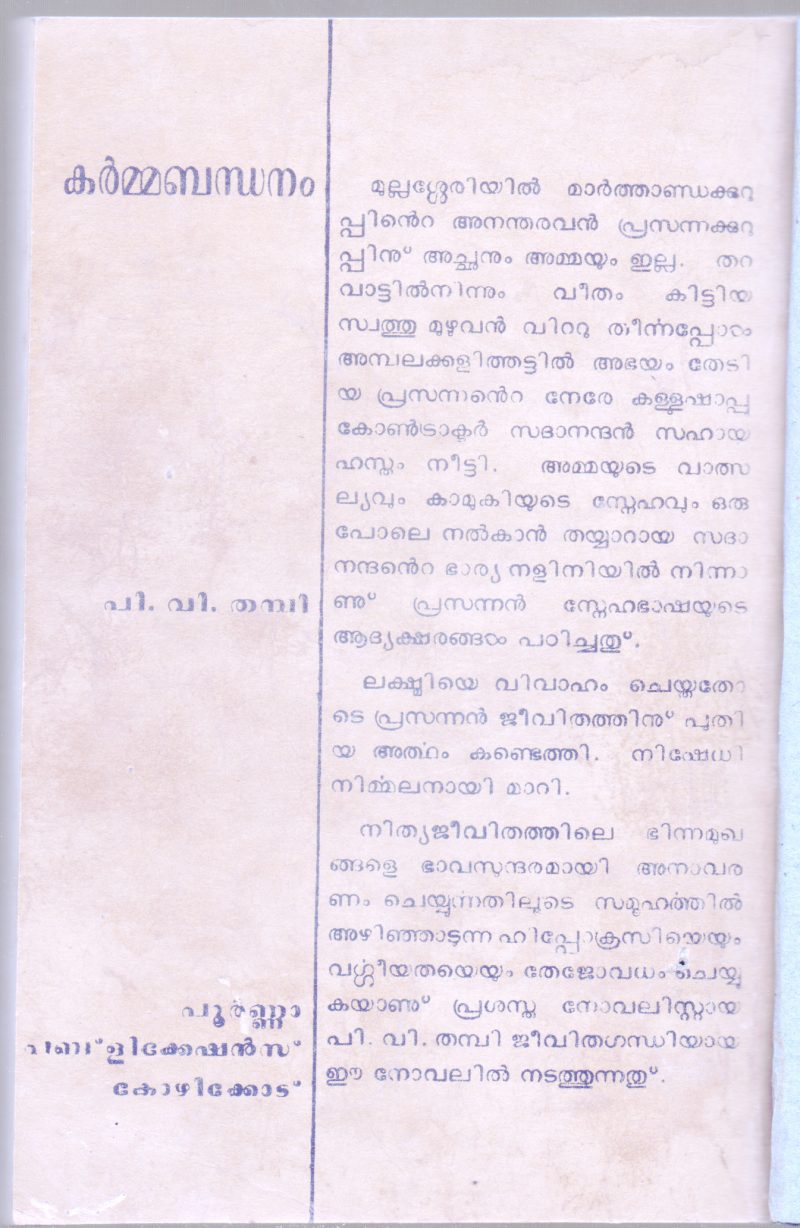 കർമ്മബന്ധനം
മുല്ലശ്ശേരിയിൽ മാർത്താണ്ഡക്കുറു
പ്പിൻെറ അനന്തരവൻ പ്രസന്നക്കുറു
പ്പിനു് അച്ഛനും അമ്മയും ഇല്ല. തറ
വാട്ടിൽനിന്നും വീതം കിട്ടിയ
സ്വത്തു മുഴുവൻ വിററു തീൎന്നപ്പോൾ
അമ്പലക്കളിത്തട്ടിൽ അഭയം തേടി
യ പ്രസന്നൻെറ നേരേ കള്ളുഷാപ്പു
കോൺട്രാക്ടർ സദാനന്ദൻ സഹായ
ഹസ്തം നീട്ടി. അമ്മയുടെ വാത്സ
ല്യവും കാമുകിയുടെ സ്നേഹവും ഒരു
പോലെ നൽകാൻ തയ്യാറായ സദാ
നന്ദൻെറ ഭാര്യ നളിനിയിൽ നിന്നാ
ണു് പ്രസന്നൻ സ്നേഹഭാഷയുടെ
ആദ്യക്ഷരങ്ങൾ പഠിച്ചതു്.
ലക്ഷ്മിയെ വിവാഹം ചെയ്തതോ
ടെ പ്രസന്നൻ ജീവിതത്തിനു് പുതി
യ അൎത്ഥം കണ്ടെത്തി. നിഷേധി
നിൎമ്മലനായി മാറി.
നിത്യജീവിതത്തിലെ ഭിന്നമുഖ
ങ്ങളെ ഭാവസുന്ദരമായി അനാവര
ണം ചെയ്യുന്നതിലൂടെ സമൂഹത്തിൽ
അഴിഞ്ഞാടുന്ന ഹിപ്പോക്രസിയെയും
വൎഗ്ഗീയതയെയും തേജോവധം ചെയ്യു
കയാണു് പ്രശസ്ത നോവലിസ്റ്റായ
പി. വി. തമ്പി ജീവിതഗന്ധിയായ
ഈ നോവലിൽ നടത്തുന്നതു്.
പി. വി. തമ്പി
പൂർണ്ണാ
പബ്ളിക്കേഷൻസ്
കോഴിക്കോട്